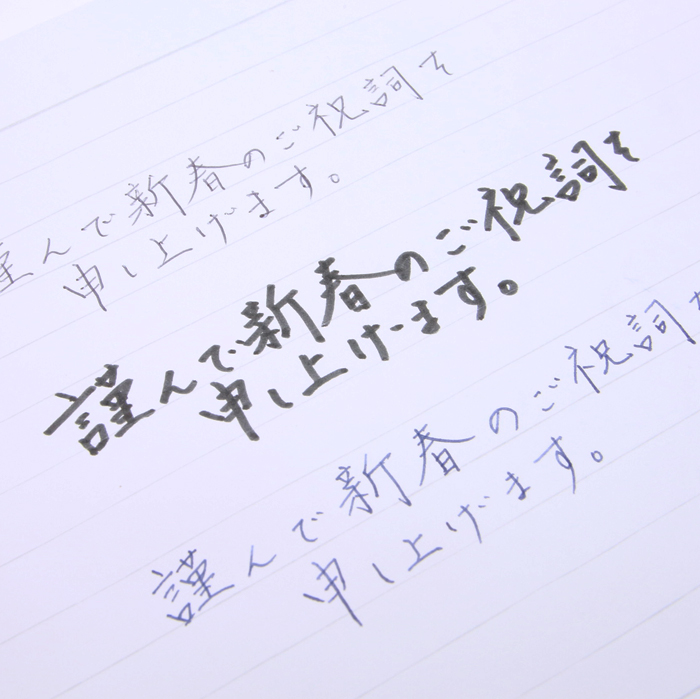 謹んで新春のご祝詞を
申し上げます。
謹んで新春のご祝詞を
申し上げます。
謹んで新春のご祝詞を
申し上げます。